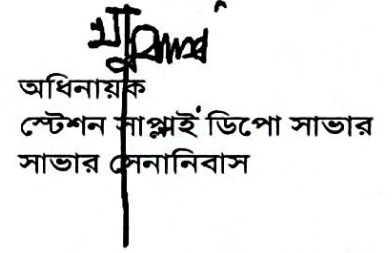 অধিনায়ক
স্টেশন সাপ্লাই ডিপো সাভার
সাভার সেনানিবাস